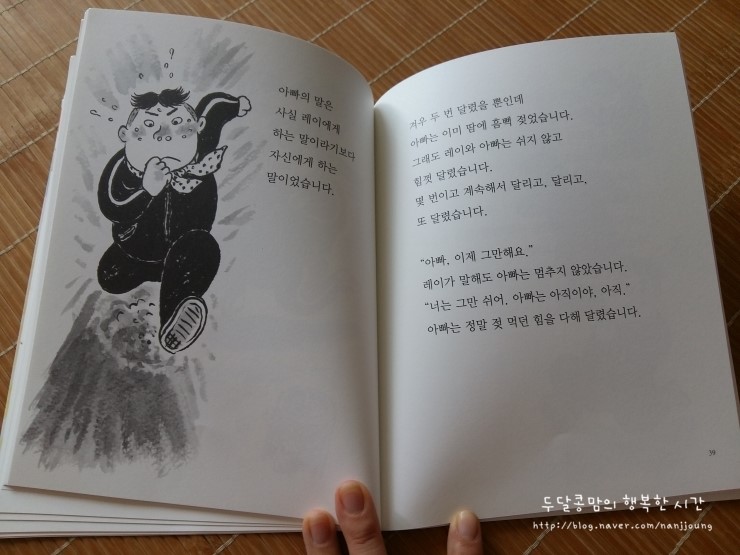 아빠의 말은
사실 레이에게
하는 말이라기보다
자신에게 하는
말이었습니다.
겨우 두 번 달렸을 뿐인데
아빠는 이미 땀에 흠뻑 젖었습니다.
그래도 레이와 아빠는 쉬지 않고
힘껏 달렸습니다.
몇 번이고 계속해서 달리고, 달리고,
또 달렸습니다.
“아빠, 이제 그만해요.”
레이가 말해도 아빠는 멈추지 않았습니다.
“너는 그만 쉬어, 아빠는 아직이야, 아직.”
아빠는 정말 젖 먹던 힘을 다해 달렸습니다.
39
두달콩맘의 행복한 시간
http://blog.naver.com/nanjjoung